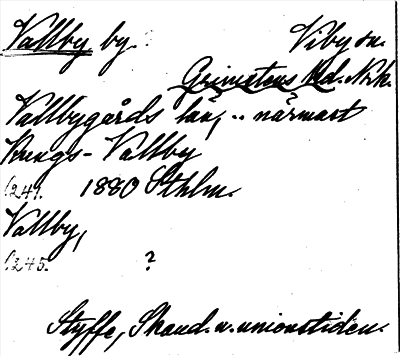 Vallby by. Viby sn.
Grimstens hd. Nrk.
Vallbygårds län, .. närmast
Kungs-Vallby
s. 241. 1880 Sthlm.
Vallby,
s. 245. ?
Styffe, Skand. u. unionstiden.